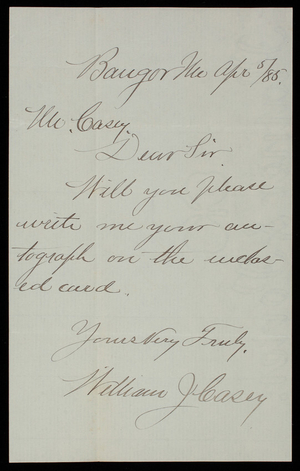 Bangor Me Apr 5/85.
Mr. Casey.
Dear Sir.
Will you please
write me your au-
tograph on the inclos-
ed card.
Yours Very Truly,
William J Casey